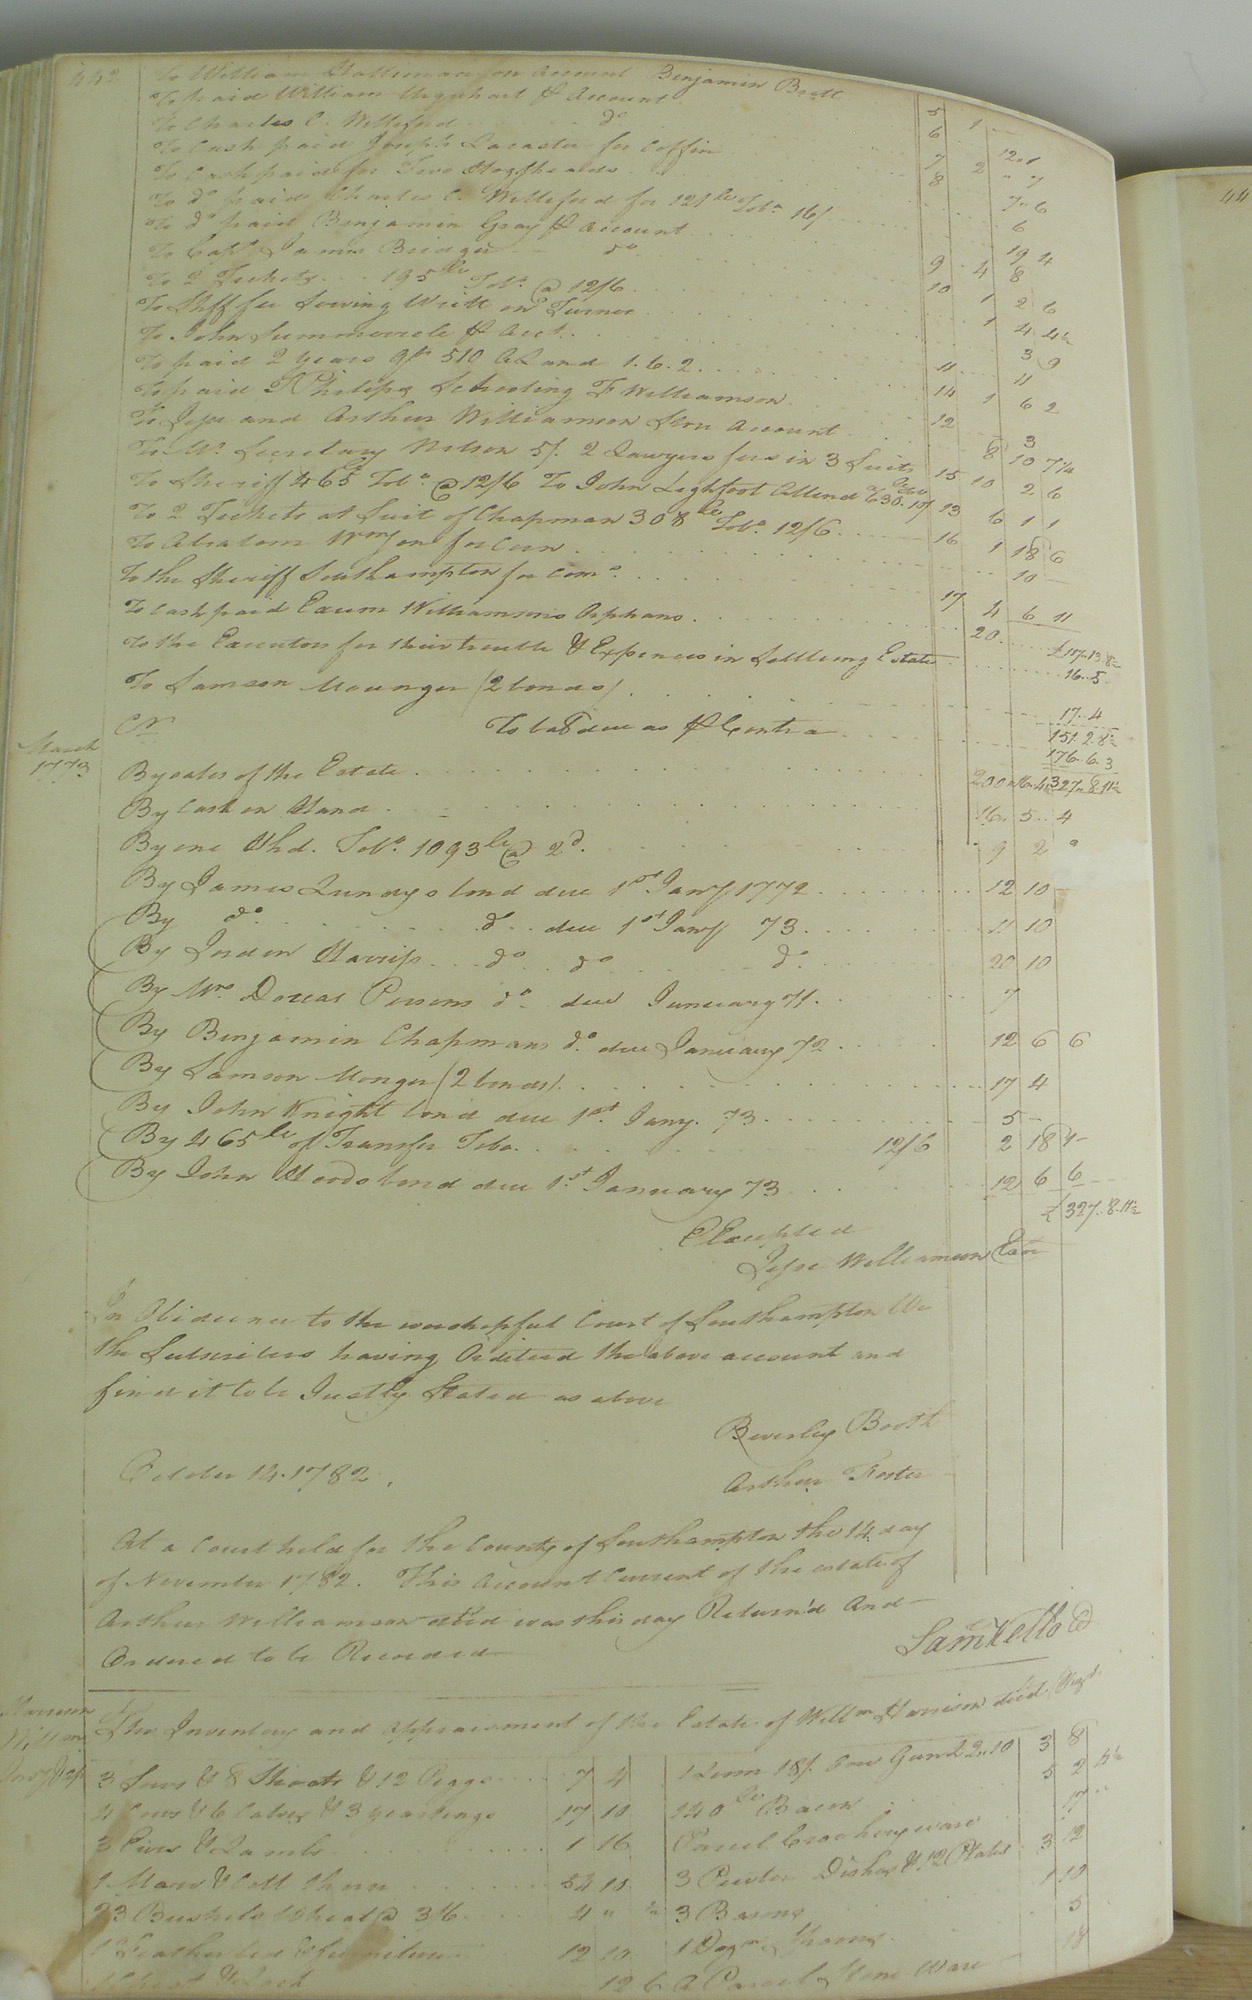 442
To William Hattiman on account Benjamin Britt
To paid William Urquhart ⅌ Account 5 1 —
To Charles C. Williford do 6 12 1
To Cash paid Joseph Lacaster for Coffin 7 2 " 7
To Cash paid for Two Hogsheads 8 7 6
To do paid Charles C. Williford for 121 lb Tobo 16/ 6
To do paid Benjamin Gray ⅌ Account 19 4
To Capt James Bridger do 9 4 8
To 2 Tickets 195 lb Tobo @ 12/6 10 1 2 6
To Shff fee Serving Writt on Turner 1 4 4½
To John Summerell ⅌ Acct. 3 9
To paid 2 years qts 510 A Land 1.6.2 11 11
To paid Philips Schooling F Williamson 14 1 6 2
To Jesse and Arthur Williamson Store Account 12 3
To Mr Secretary Nelson 5/. 2 Lawyers fees in 3 Suits 15 8 10 7¼
To Sheriff 465 Tobo @ 12/6 To John Lightfoot Attend 630. 10/ 13 10 2 6
To 2 Tickets at Suit of Chapman 308 lb Tobo 12/6 16 6 1 1
To Abraham for Corn 1 18 6
To the Sheriff Southampton for Coms 10 —
To Cash paid Exum Williamsons Orphans 17 4 6 11
To the Executors for their trouble & Expences in Settleing Estate 20 £107.13.8½
To Samson Mounger (2 bonds) 16..5
17..4
Cr To bal due as ⅌ Contra 151.2.8½
176.6.3
March
1773
By sales of the Estate 200 16 4 327..8.11½
By Cash in Hand 16 5 4
By one Hhd. Tobo 1093 lb @ 2d 9 2 "
By James Lundys bond due 1st Jany 1772 12 10
By do do due 1st Jany 73 11 10
By Jordon Harriss do do do 20 10
By Mrs Dorcas Persons do due January 71 7
By Benjamin Chapmans do due January 72 12 6 6
By Samson Monger (2 bonds) 17 4
By John Knight bond due 1st Jany. 73 5 —
By 465 lb of Transfer Tobo. 12/6 2 18 1—
By John Woods bond due 1st January 73 12 6 6
£327..8.11½
E Excepted
Jesse Williamson Exor
In Obidience to the worshipful Court of Southampton We
the Subscribers having Oditeed the above account and
find it to be Justly Stated as above
Beverley Booth
October 14. 1782.
Arthur Foster
At a Court held for the County of Southampton the 14 day
of November 1782. This Account Current of the estate of
Arthur Williamson decd was this day Return'd And
Ordered to be Recorded
Saml Kello Cl
The Inventory and Appraisement of the Estate of Willm Harrison decd
3 Sows & 8 Shoats & 12 Piggs 7 4
4 Cows & 6 Calves & 3 yearlings 17 10
3 Ews & Lambs 1 16
1 Mare & Colt 54 10
23 Bushels Wheat @ 3/6 4 " 6
1 Feather bed & furniture 12 10
12 6
1 Loom 18/. Gun £2..10 3 8
140 lb Bacon 5 2 4½
Parcel Crockeryware 17 "
3 Pewter Dishes & 12 Plates 3 12
3 Basons 1 10
1 Dozn Spoons 5
A Parcel Stone Ware 18